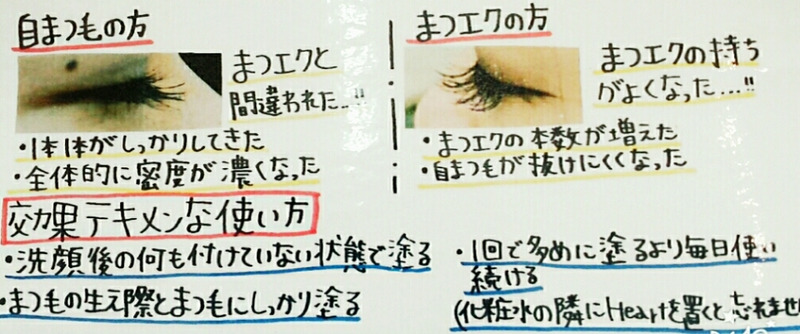 自まつ毛の方
まつエクと
間違われた…!!
・1本1本がしっかりしてきた
・全体的に密度が濃くなった
まつエクの方
まつエクの持ち
がよくなった…!!
・まつエクの本数が増えた
・自まつ毛が抜けにくくなった
効果テキメンな使い方
・洗顔後の何も付けていない状態で塗る
・まつ毛の生え際とまつ毛にしっかり塗る
・1回で多めに塗るより毎日使い
続ける
(化粧水の隣にHeartを置くと忘れませ